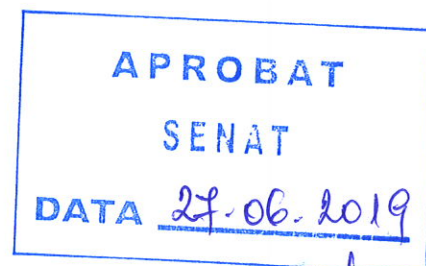 APROBAT
SENAT
DATA 27.06.2019